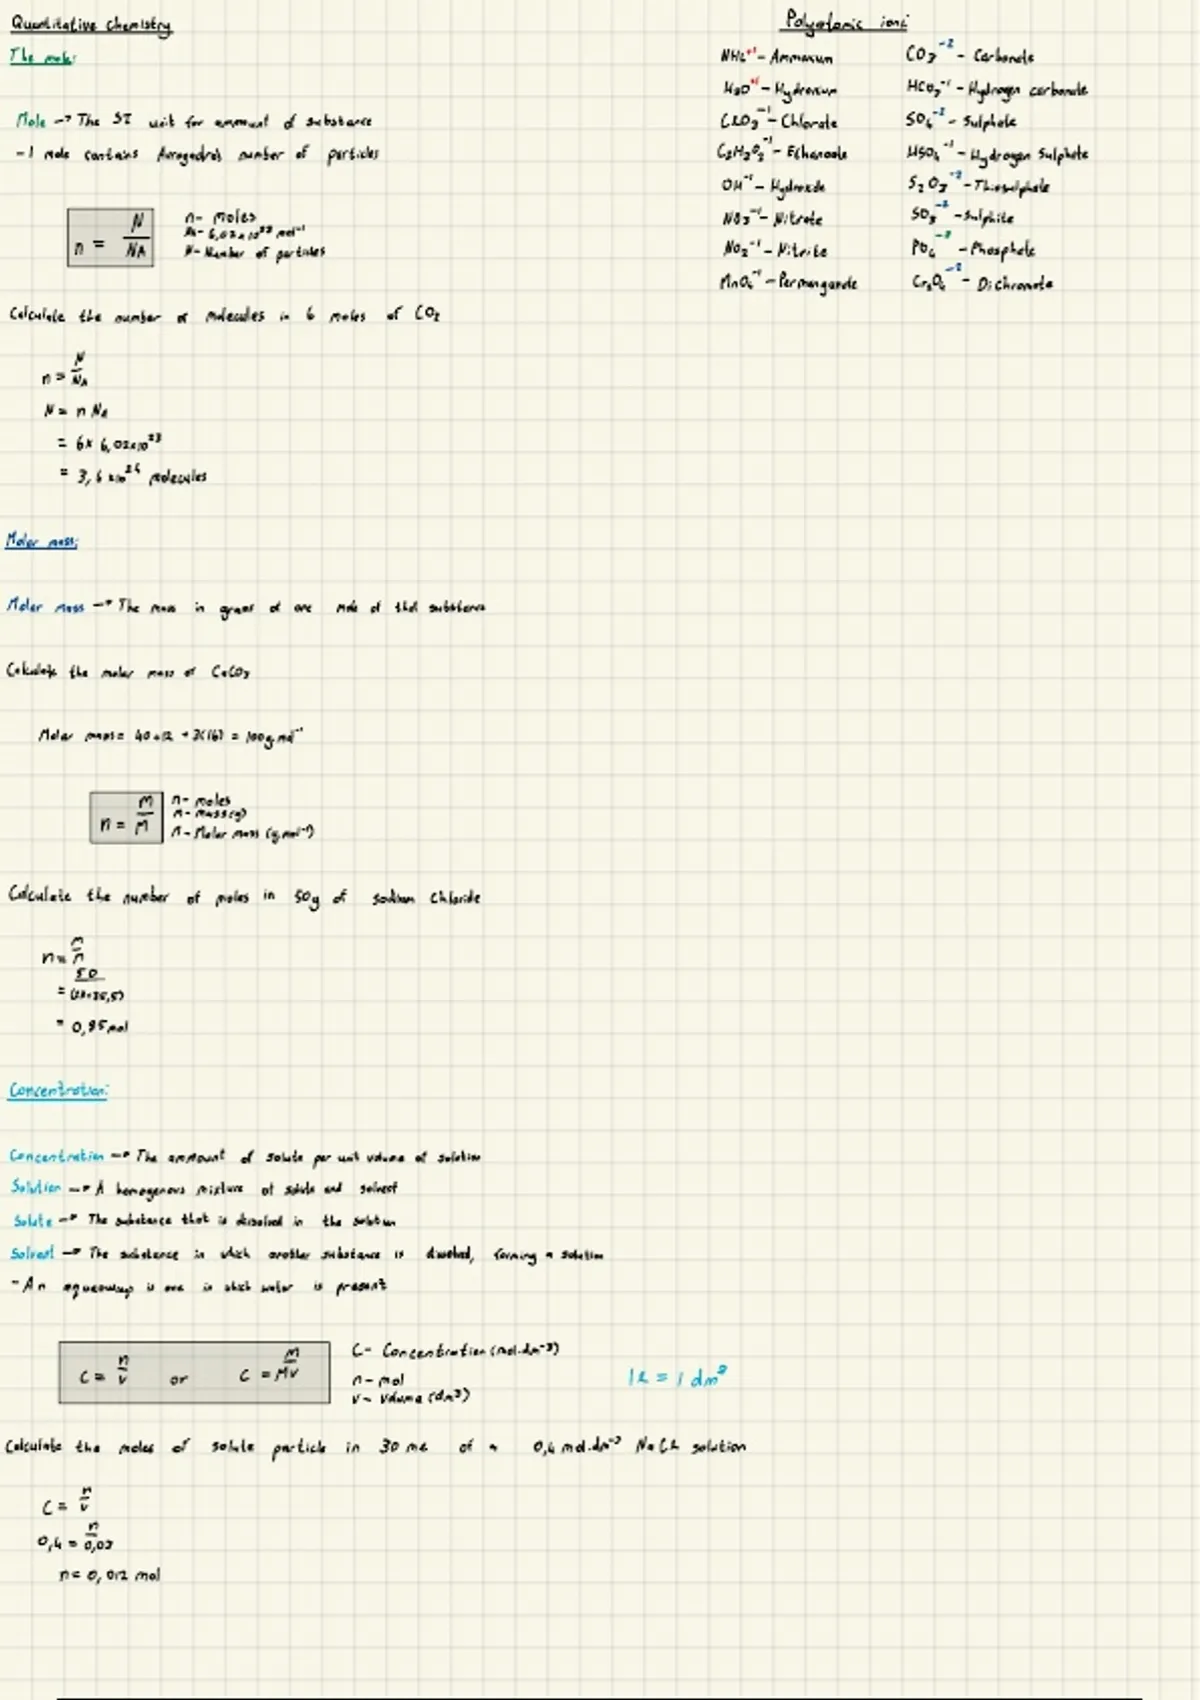 Quantitative Chemistry
The mole:
Mole → The SI unit for ammount of substance
-1 mole contains Avrogadro's number of particles
n = N/NA
n- moles
NA- 6,02×10²³ mol⁻¹
N- Number of particles
Calculate the number of molecules in 6 moles of CO₂
n = N/NA
N = n NA
= 6× 6,02×10²³
= 3,6 ×10²⁴ molecules
Molar mass:
Molar mass → The mass in grams of one mole of that substance
Calculate the molar mass of CaCO₃
Molar mass = 40+12 +3(16) = 100g.mol⁻¹
n = m/M
n- moles
m- mass(g)
M- Molar mass (g.mol⁻¹)
Calculate the number of moles in 50g of sodium Chloride
n = m/M
= 50/(23+35,5)
= 0,85mol
Concentration:
Concentration → The ammount of solute per unit volume of solution
Solution → A homogenous mixture of solute and solvent
Solute → The substance that is dissolved in the solution
Solvent → The substance in which another substance is dissolved, forming a solution
-An is one in which water is present
C = n/v or C = m/Mv
C- Concentration (mol.dm⁻³)
n- mol
v- Volume (dm³)
1ℓ = 1 dm³
Calculate the moles of solute particle in 30 mℓ of a 0,4 mol.dm⁻³ NaCℓ solution
C = n/v
0,4 = n/0,03
n = 0,012 mol
Polyatomic ions
NH₄⁺¹ - Ammonium
H₃O⁺¹ - Hydronium
CℓO₃⁻¹ - Chlorate
C₂H₃O₂⁻¹ - Ethanoate
OH⁻¹ - Hydroxide
NO₃⁻¹ - Nitrate
NO₂⁻¹ - Nitrite
MnO₄⁻¹ - Permanganate
CO₃⁻² - Carbonate
HCO₃⁻¹ - Hydrogen carbonate
SO₄⁻² - Sulphate
HSO₄⁻¹ - Hydrogen Sulphate
S₂O₃⁻² - Thiosulphate
SO₃⁻² - Sulphite
PO₄⁻³ - Phosphate
Cr₂O₄⁻² - Dichromate